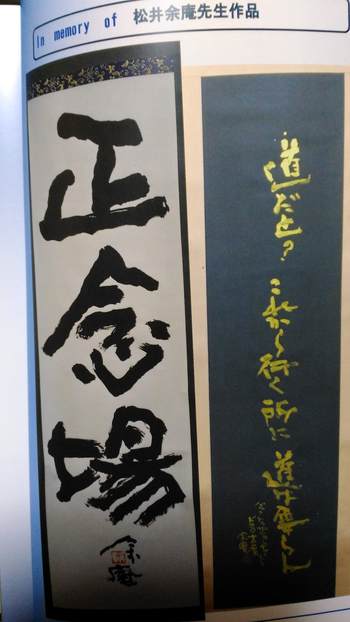 In memory of 松井余庵先生作品
正念場
余庵
道だと?
これから行く所に道は要らん